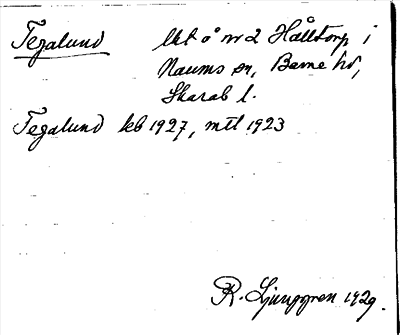 Tegalund lht å nr 2 Hålltorp i
Naums sn, Barne hd,
Skarab l.
Tegalund kb 1927, mtl 1923
R. Ljunggren 1929.